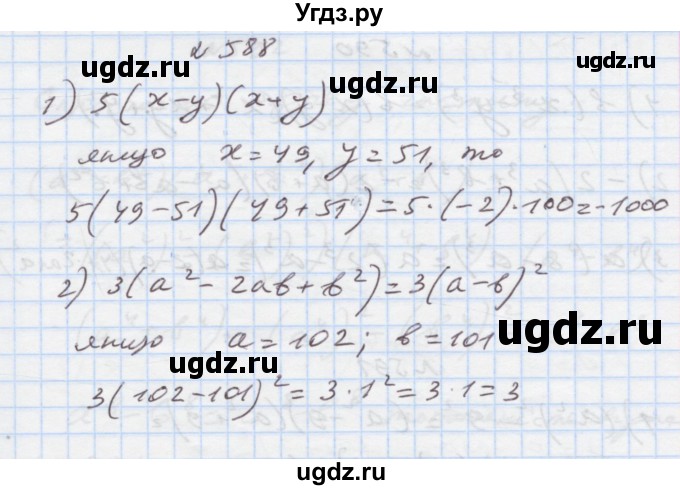 Угдз.ру
№ 588
1) 5(x-y)(x+y)
якщо x=49, y=51, то
5(49-51)(49+51)=5·(-2)·100=-1000
2) 3(a²-2ab+b²)=3(a-b)²
якщо a=102; b=101
3(102-101)²=3·1²=3·1=3
ugdz.ru
ugdz.ru
ugdz.ru
ugdz.ru
ugdz.ru
ugdz.ru
ugdz.ru
ugdz.ru
ugdz.ru